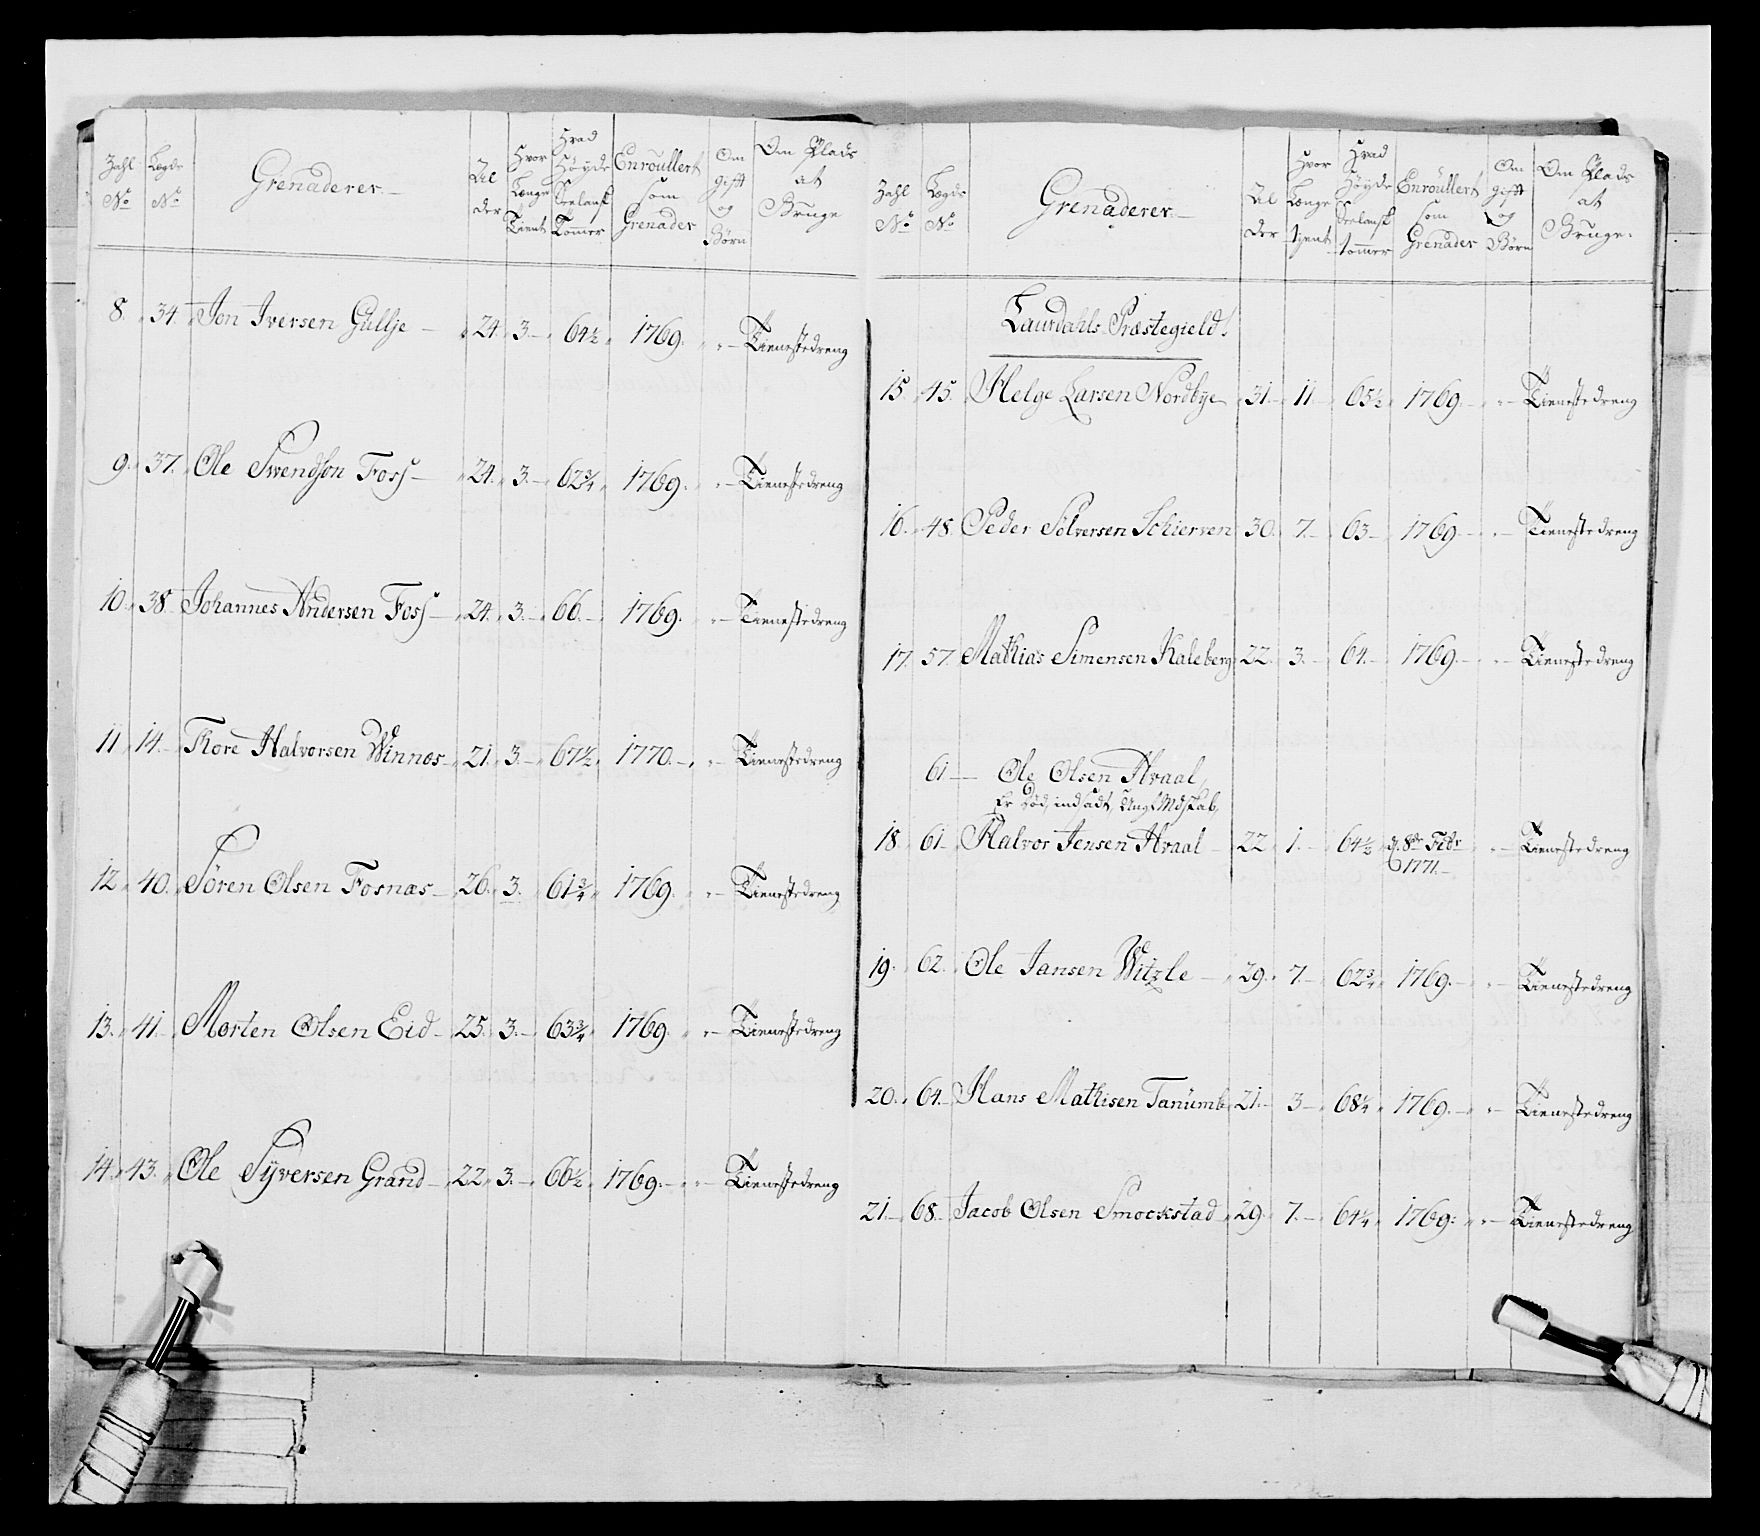 Zahl No | Lægds No | Grenaderer | Alder | Hvor Længe Tient | Hvad Høyde Seelansk Tommer | Enroullert som Grenader | Om gifft og Børn | Om Plads at Bruge
8. 34. Jon Iversen Gullje 24 3. 64½ 1769. Tienestedreng
9. 37. Ole Swendsøn Foss 24. 3. 62¾ 1769. Tienestedreng
10. 38. Johannes Andersen Foss 24. 3. 66. 1769. Tienestedreng
11 14. Thore Halvorsen Winnes 21. 3. 67½ 1770. Tienestedreng
12 40. Sören Olsen Fosnæs 26. 3. 61¾ 1769. Tienestedreng
13. 41. Morten Olsen Eid 25. 3. 63¾ 1769. Tienestedreng
14. 43. Ole Syversen Grand 22. 3. 66½ 1769. Tienestedreng
Zahl No | Lægds No | Grenaderer | Alder | Hvor Længe tient | Hvad Høyde Seelansk tommer | Enroullert som Grenader | Om gifft og Børn | Om Plads at Bruge
Laurdahls Præstegield.
15. 45. Helge Larsen Nordbye 31. 11. 65½ 1769. Tienestedreng
16. 48. Peder Sölversen Schierven 30. 7. 63 1769. Tienestedreng
17. 57. Mathias Simensen Kaleberg 22. 3. 64. 1769. Tienestedreng
61 Ole Olsen Hvaal,
Er död, indsadt, Ungt Mdskab,
18. 61. Halvor Jensen Hvaal 22 1. 64½ d. 8de Febr Tienestedreng
1771.
19. 62. Ole Jansen Witzle 29. 7. 62¾ 1769. Tienestedreng
20. 64. Hans Mathisen Tanumb 21. 3 68¼ 1769. Tienestedreng
21. 68. Jacob Olsen Smockstad 29. 7. 64¼ 1769. Tienestedreng